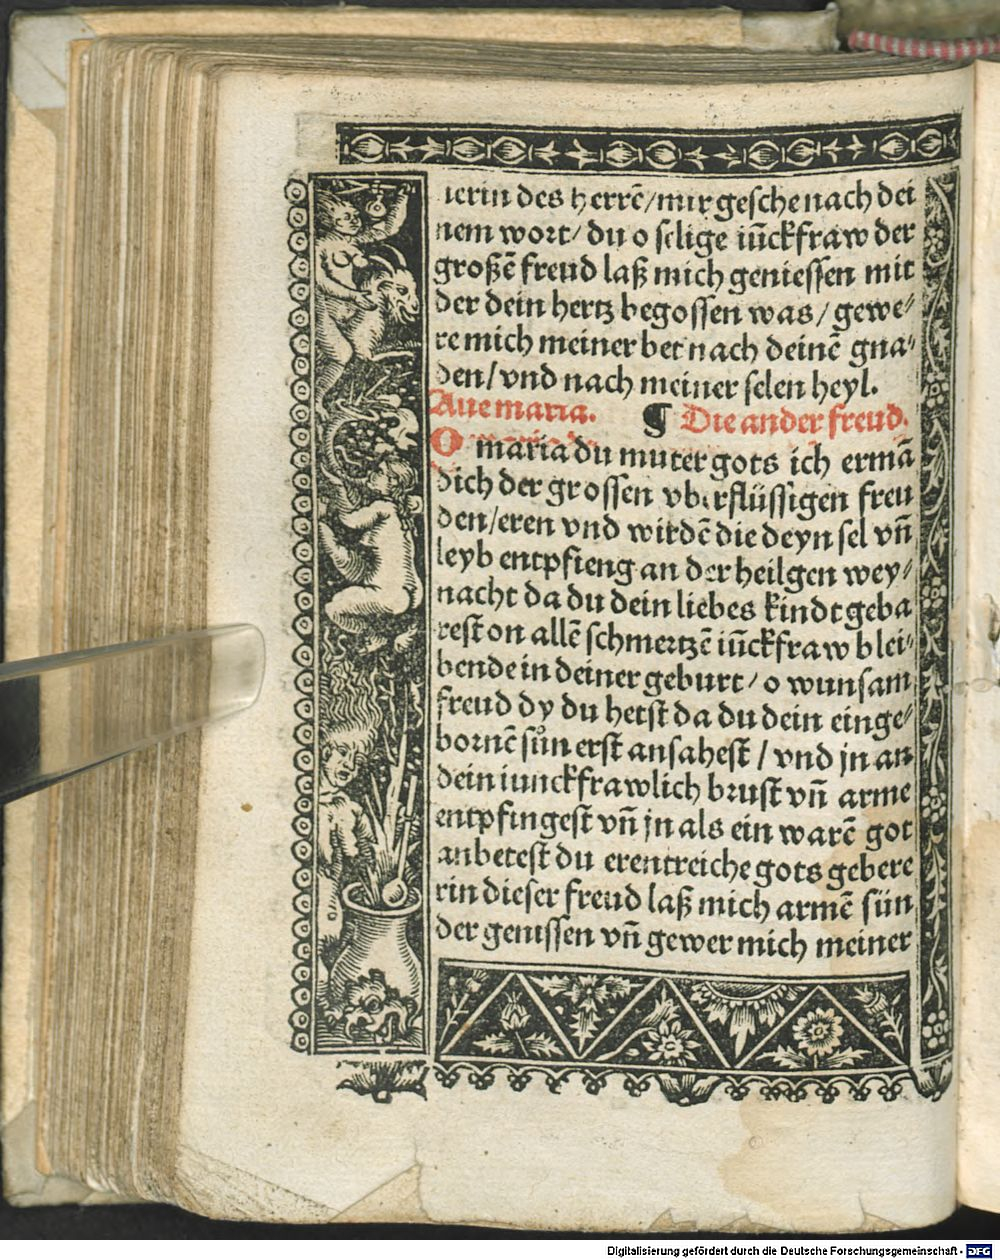 ierin des herrē/mir geschenach dei
nem wort/du o selige iūckfraw der
großē freud laß mich geniessen mit
der dein hertz begossen was/gewe⸗
re mich meiner bet nach deinē gna⸗
den/vnd nach meiner selen heyl.
Aue maria. ¶ Die ander freud.
O maria du muter gots ich ermā
dich der grossen vberflüssigen freu
den/eren vnd wirdē die deyn sel vñ
leyb entpfieng an der heilgen wey⸗
nacht da du dein liebes kindt geba
rest on allē schmertzē iūckfraw blei⸗
bende in deiner geburt/o wunsam
freud dy du hetst da du dein einge⸗
bornē sůn erst ansahest/vnd jn an
dein iunckfrawlich brust vñ arme
entpfingest vñ jn als ein warē got
anbetest du erentreiche gots gebere
rin dieser freud laß mich armē sün
der genissen vñ gewer mich meiner
Digitalisierung gefördert durch die Deutsche Forschungsgemeinschaft - DFG